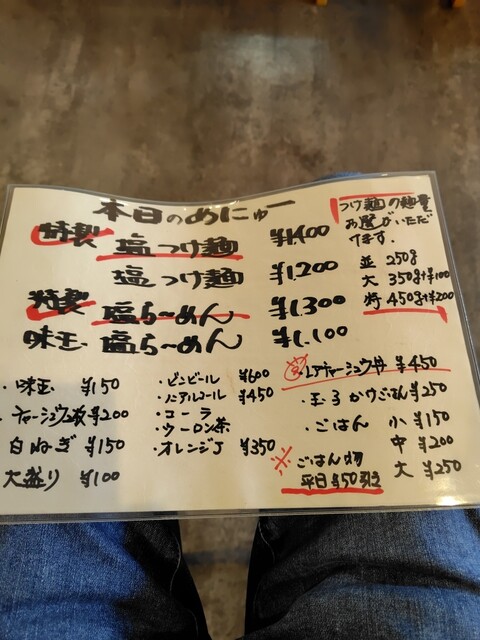 本日のめにゅー
特製 塩つけ麺 ¥1,400
塩つけ麺 ¥1,200
特製 塩らーめん ¥1,300
味玉 塩らーめん ¥1,100
つけ麺の麺量
お選びいただ
けます.
並 250g
大 350g+¥100
特 450g+¥200
・味玉 ¥150
・チャーシュウ2枚 ¥200
白ねぎ ¥150
大盛り ¥100
・ビンビール ¥600
・ノンアルコール ¥450
・コーラ
・ウーロン茶
・オレンジJ ¥350
レアチャーシュウ丼 ¥450
・玉子かけごはん ¥250
・ごはん 小 ¥150
中 ¥200
大 ¥250
※ごはん物
平日 ¥50引き